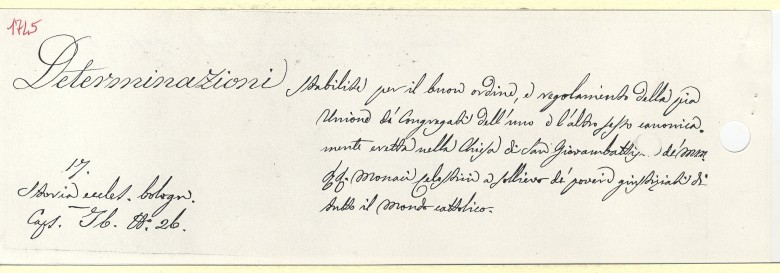 1745
Determinazioni stabilite per il buon ordine, e regolamento della pia
Unione de' Congregati dell'uno e l'altro sesso canonica-
mente eretta nella Chiesa di San Giovambatti de' MM.
RR. Monaci Celestini a sollievo de' poveri giustiziati di
tutto il Mondo cattolico.
17.
Storia eccles. bologn.
Caps. Ib. N.º 26.